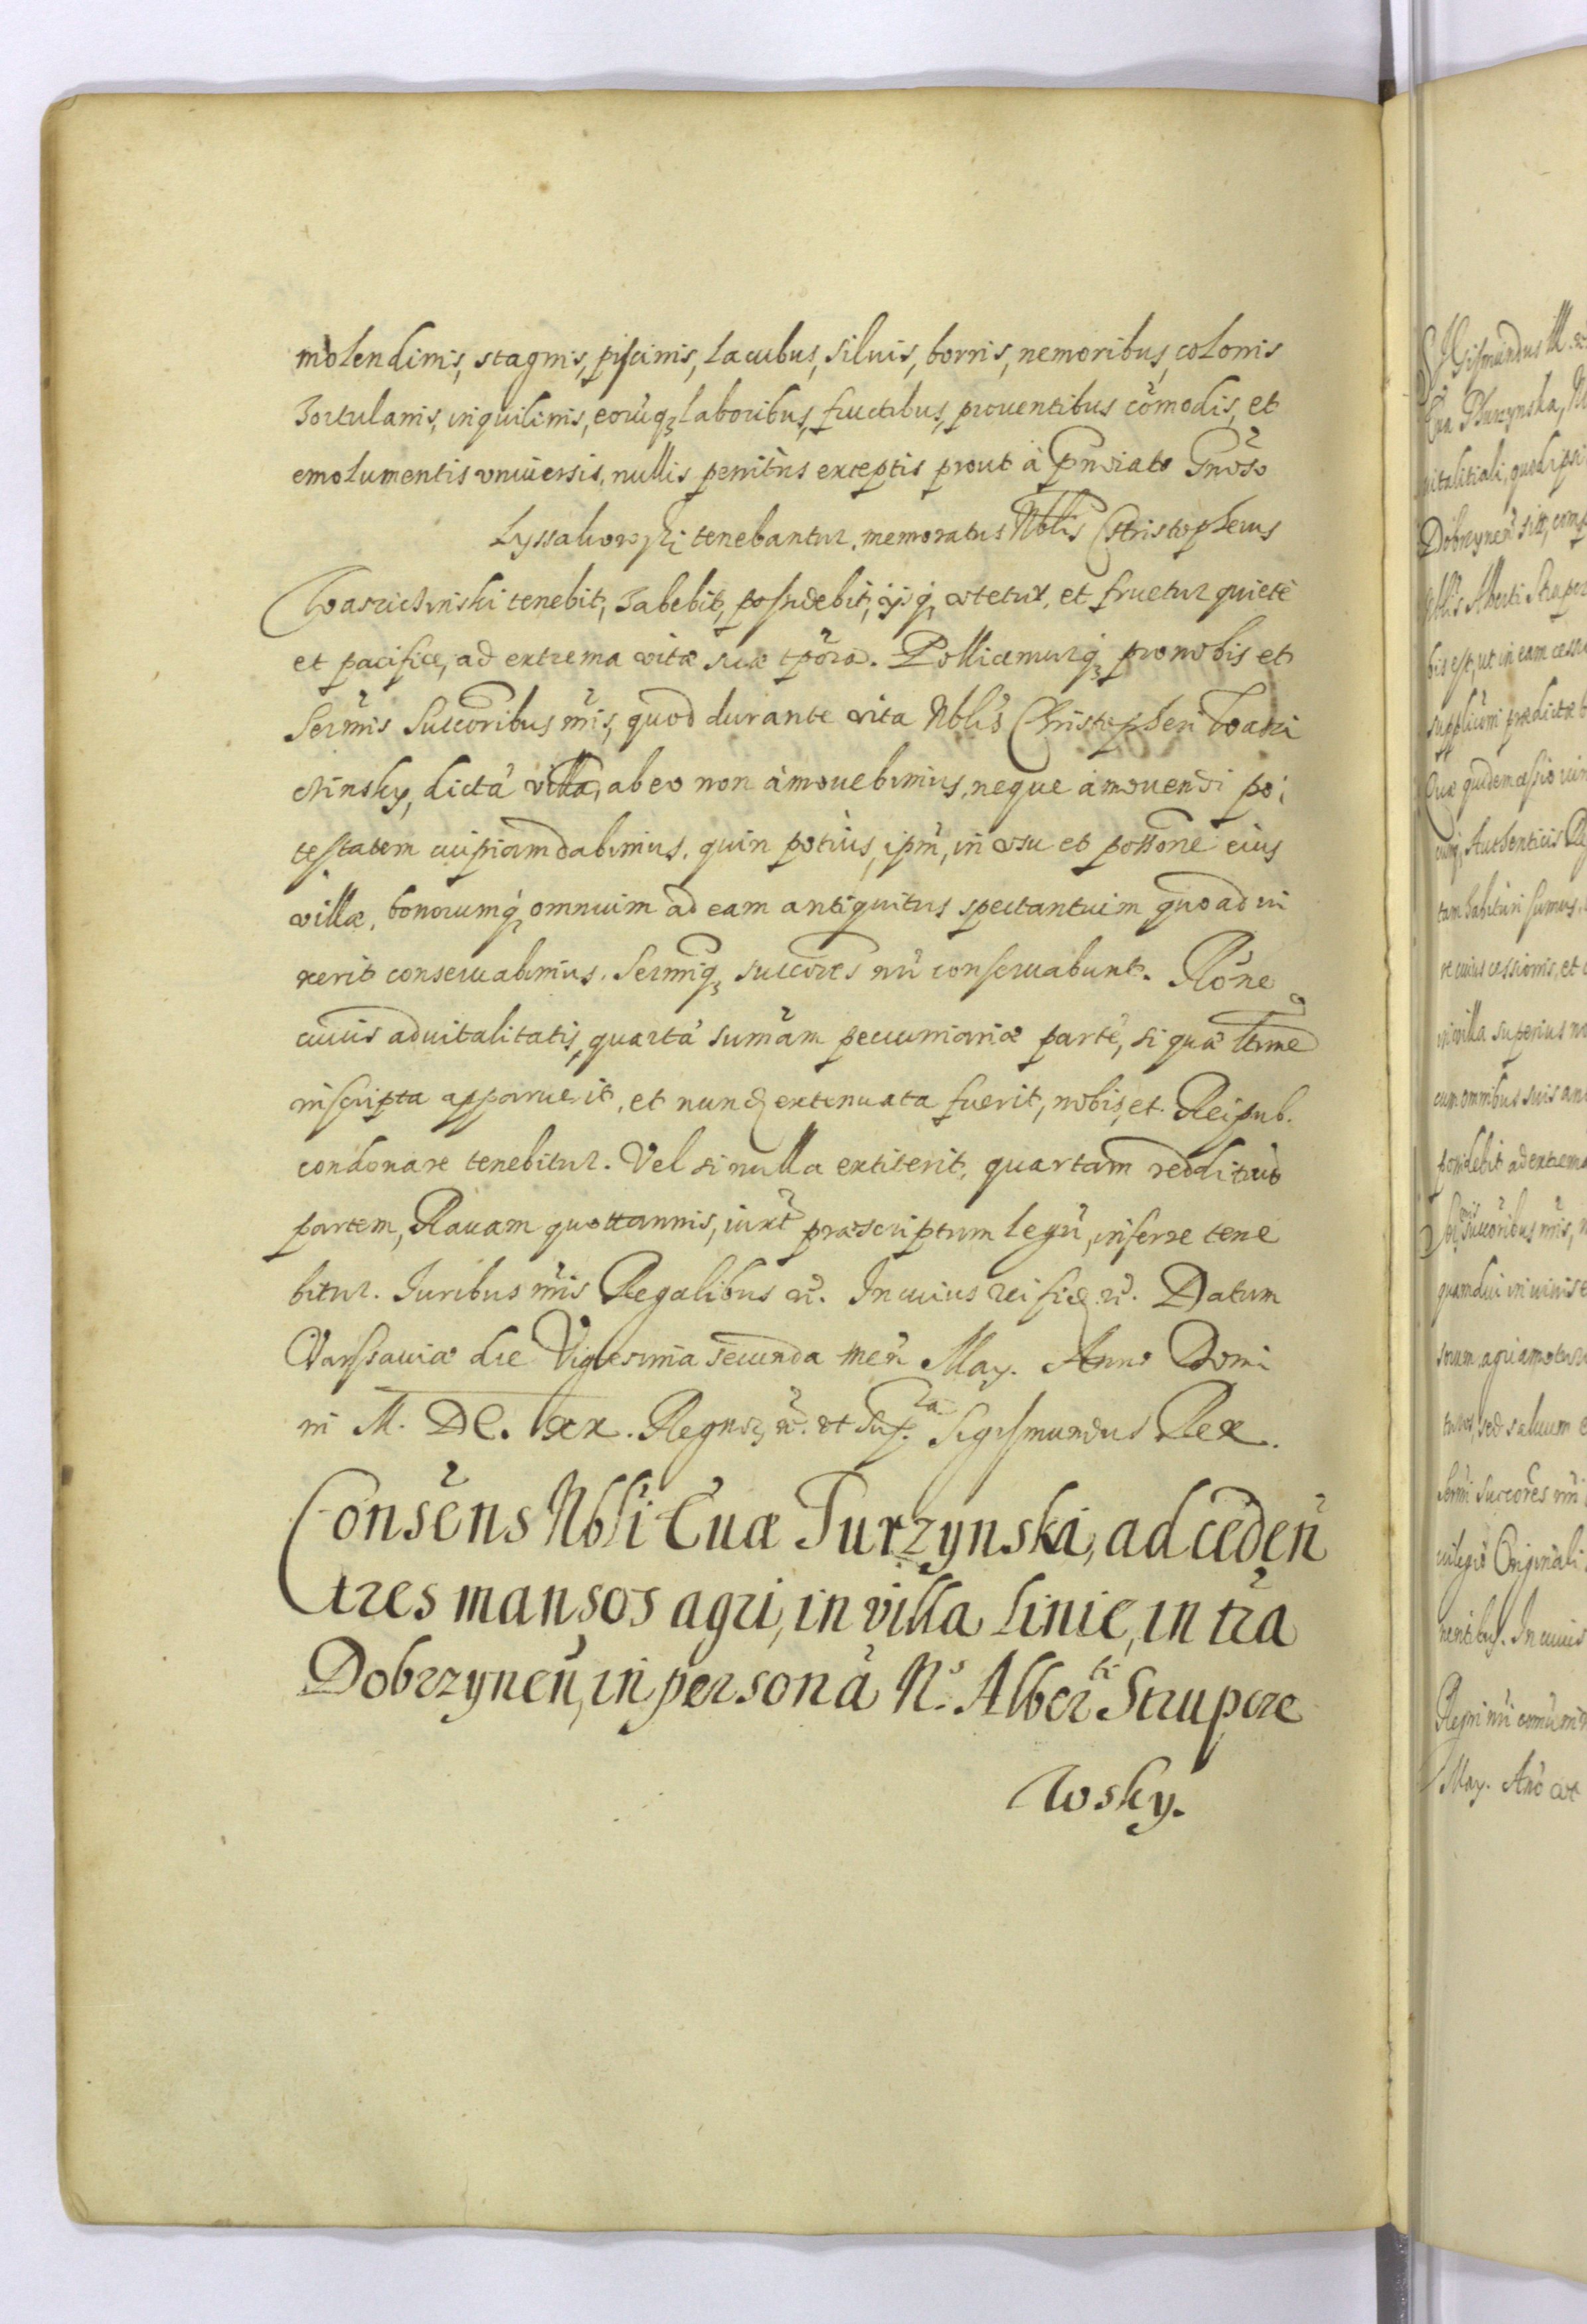 molendinis, stagnis, piscinis, lacubus, siluis, borris, nemoribus, colonis
hortulanis, inquilinis, eorūq₃ laboribus, fructibus, prouentibus cōmodis, et
emolumentis vniuersis, nullis penitus exceptis prout à pñoiato Gnōso
Lyssakowski tenebantur, memoratus Nblis Christopherus
Wasrichinski tenebit, habebit, possidebit, ijsq₃ vtetur, et fruetur quietè
et pacifice, ad extrema vitæ suæ tpōra. Pollicemurq₃ pro nobis et
Serm̄is Succoribus nr̄is, quod durante vita Nblis Christopheri Wasri
chinsky, dictā villā, ab eo non amouebimus, neque amouendi po:
testatem cuipiam dabimus, quin potius, ipm̄, in vsu et possōne eius
villæ, bonorumq₃ omnium ad eam antiquitus spectantium quoad vi
xerit conseruabimus. Sermīq₃ succores nr̄i conseruabunt. Rōne
cuius aduitalitatis, quartā sum̄am pecuniariæ partē, si quæ ltime
inscripta apparuerit, et nunq₃ extenuata fuerit, nobis, et Reipub.
condonare tenebitur. Vel si nulla extiterit, quartam reddituū
partem, Rauam quottannis, iuxt præscriptum legū, inferre tene
bitur. Iuribus nr̄is Regalibus &c. In cuius rei fid &c. Datum
Varssauiæ die Vigesima secunda men̄ May. Anno Domi
ni M. DC. XX. Regnor₃ &c. vt sup.ra Sigismundus Rex.
Consēns Nbli Euæ Turzynski, ad ceden̄
tres mansos agri, in villa Linie, in trā
Dobrzynen̄, in personā N.s Alberti Strupere
wsky.
SIgismundus III. &c.
Eua Thurzynska,
uitalitiali, quod ipsi
Dobrzynen̄ sit,
Nblis Alberti
bis est, ut in eam
supplicōni prædictæ
Quæ quidem cessio
Authenticis
tam habituri sumus,
re cuius cessionis, et
in villa superius
cum omnibus suis
possidebit ad extrema
Sermis succoribus nr̄is,
quamdiu in viuis
sorum agri
turos, sed saluum
Serm̄i Succores nr̄i
uilegio Originali
In cuius
Regni nr̄i
May. Anō